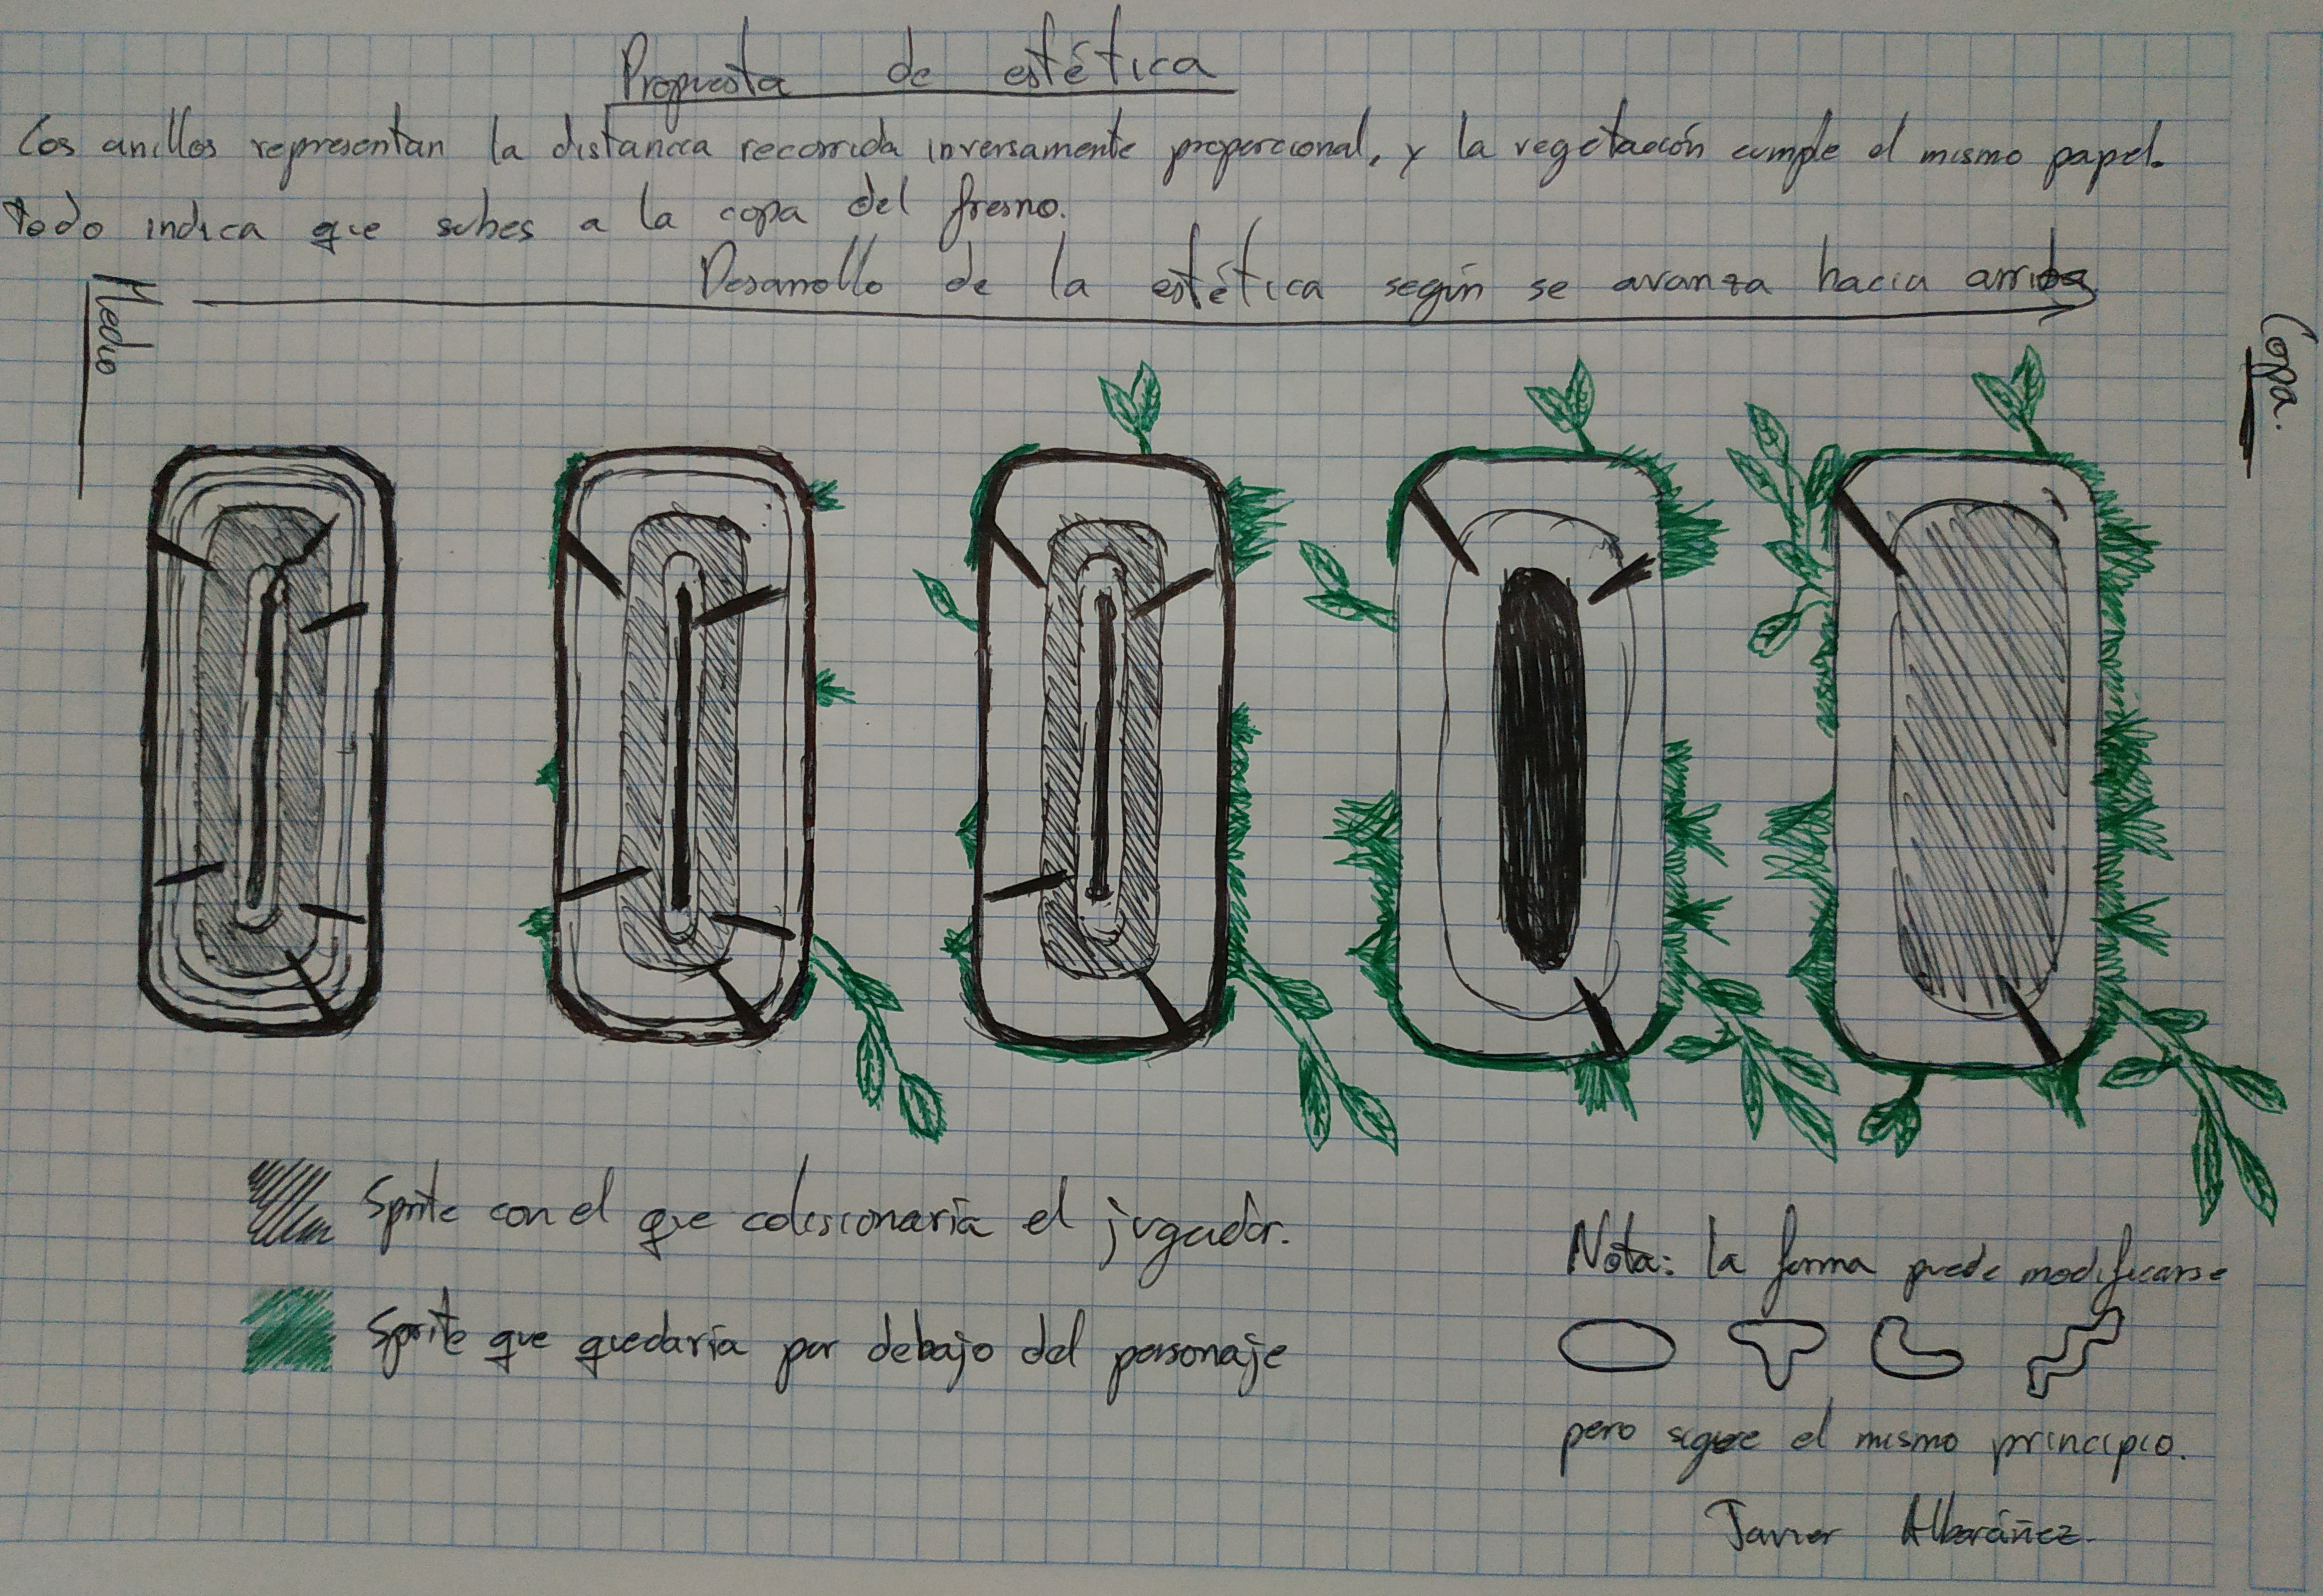 Propuesta de estética
Los anillos representan la distancia recorrida inversamente proporcional, y la vegetación cumple el mismo papel.
Todo indica que subes a la copa del fresno.
Desarrollo de la estética según se avanza hacia arriba
Medio
Copa.
Sprite con el que colisionaría el jugador.
Sprite que quedaría por debajo del personaje
Nota: la forma puede modificarse
pero sigue el mismo principio.
Javier Albaráñez.